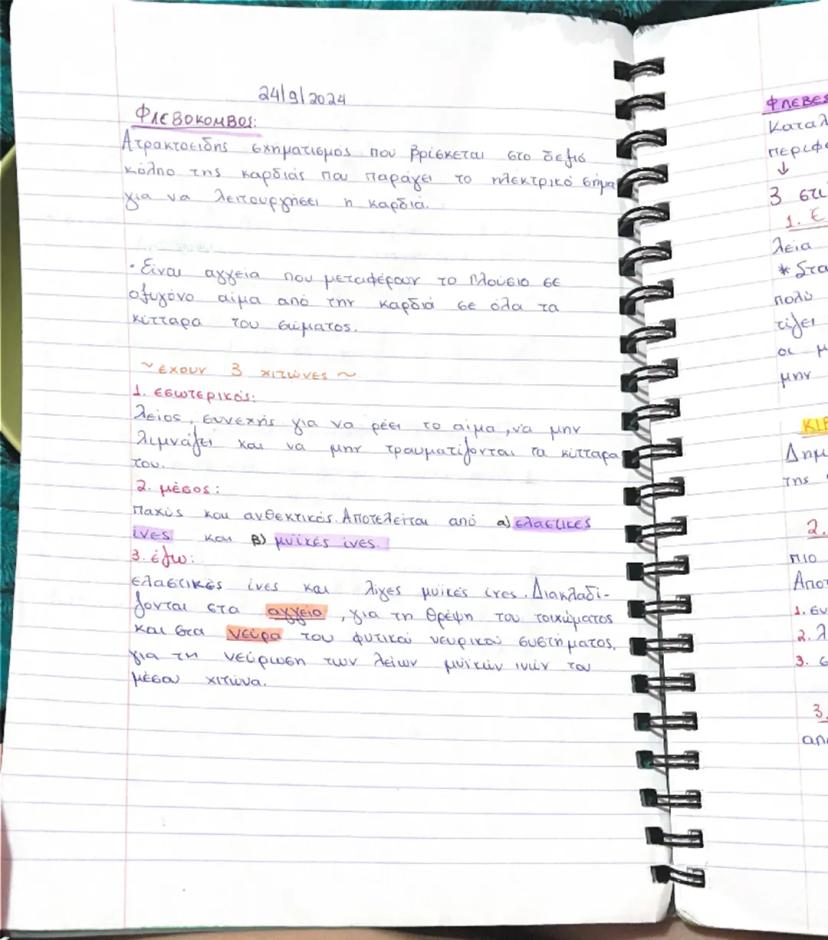 24/9/2024
ΦΛΕΒΟΚΟΜΒΟΣ:
Ατρακτοειδης σχηματισμος που βρίσκεται στο δεξιο
κόλπο της καρδιάς που παράγει το ηλεκτρικό σήμα
για να λειτουργήσει η καρδιά.
• Είναι αγγεία που μεταφέρουν το πλούσιο σε
οξυγόνο αίμα από την καρδιά σε όλα τα
κύτταρα του σώματος.
~ έχουν 3 χιτώνες ~
1. εσωτερικός:
λείος, συνεχής για να ρέει το αίμα, να μην
λιμνάζει και να μην τραυματίζονται τα κύτταρα
του.
2. μέσος:
Παχύς και ανθεκτικός. Αποτελείται από α) ελαστικές
ίνες και β) μυϊκές ίνες.
3. έξω:
ελαστικές ίνες και λίγες μυϊκές ίνες. Διακλαδί-
ζονται στα αγγεία, για τη θρέψη του τοιχώματος
και στα νεύρα του φυτικού νευρικού συστήματος,
για τη νεύρωση των λείων μυϊκών ινών του
μέσου χιτώνα.
ΦΛΕΒΕΣ
Καταλ
περιφ
↓
3 στι
1. Ε
λεία
* Στα
πολύ
τίζει
οι μ
μην
ΚΙΡ
Δημ
της
2.
πιο
Αποτ
1. συ
2. λ
3. ε
3.
απ